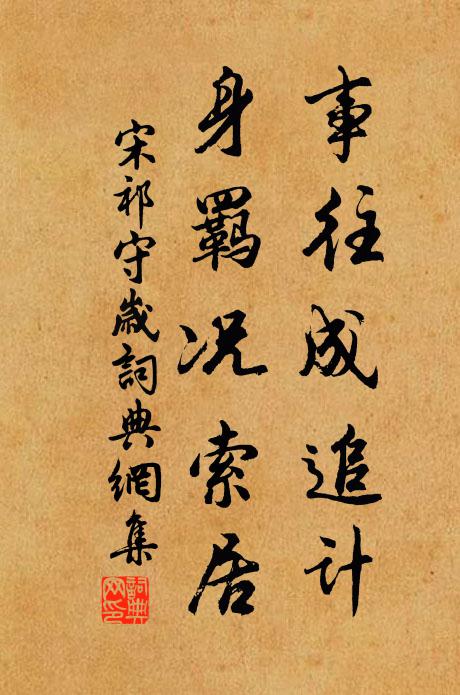 事往成追计
身羁况索居
宋祁守歲詞典網集
詞典網印